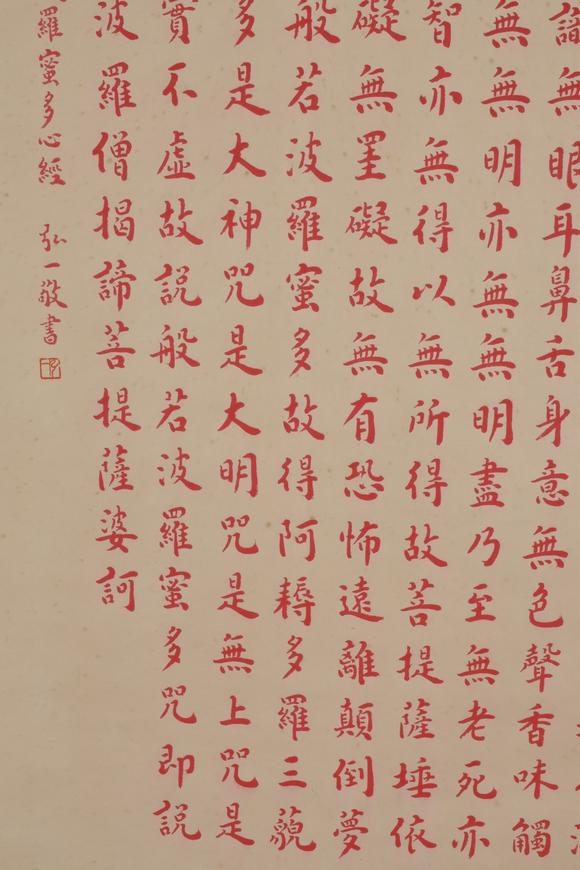 識無眼耳鼻舌身意無色聲香味觸
無無明亦無無明盡乃至無老死亦
智亦無得以無所得故菩提薩埵依
礙無罣礙故無有恐怖遠離顛倒夢
般若波羅蜜多故得阿耨多羅三藐
多是大神咒是大明咒是無上咒是
實不虛故說般若波羅蜜多咒即說
波羅僧揭諦菩提薩婆訶
羅蜜多心經 弘一敬書